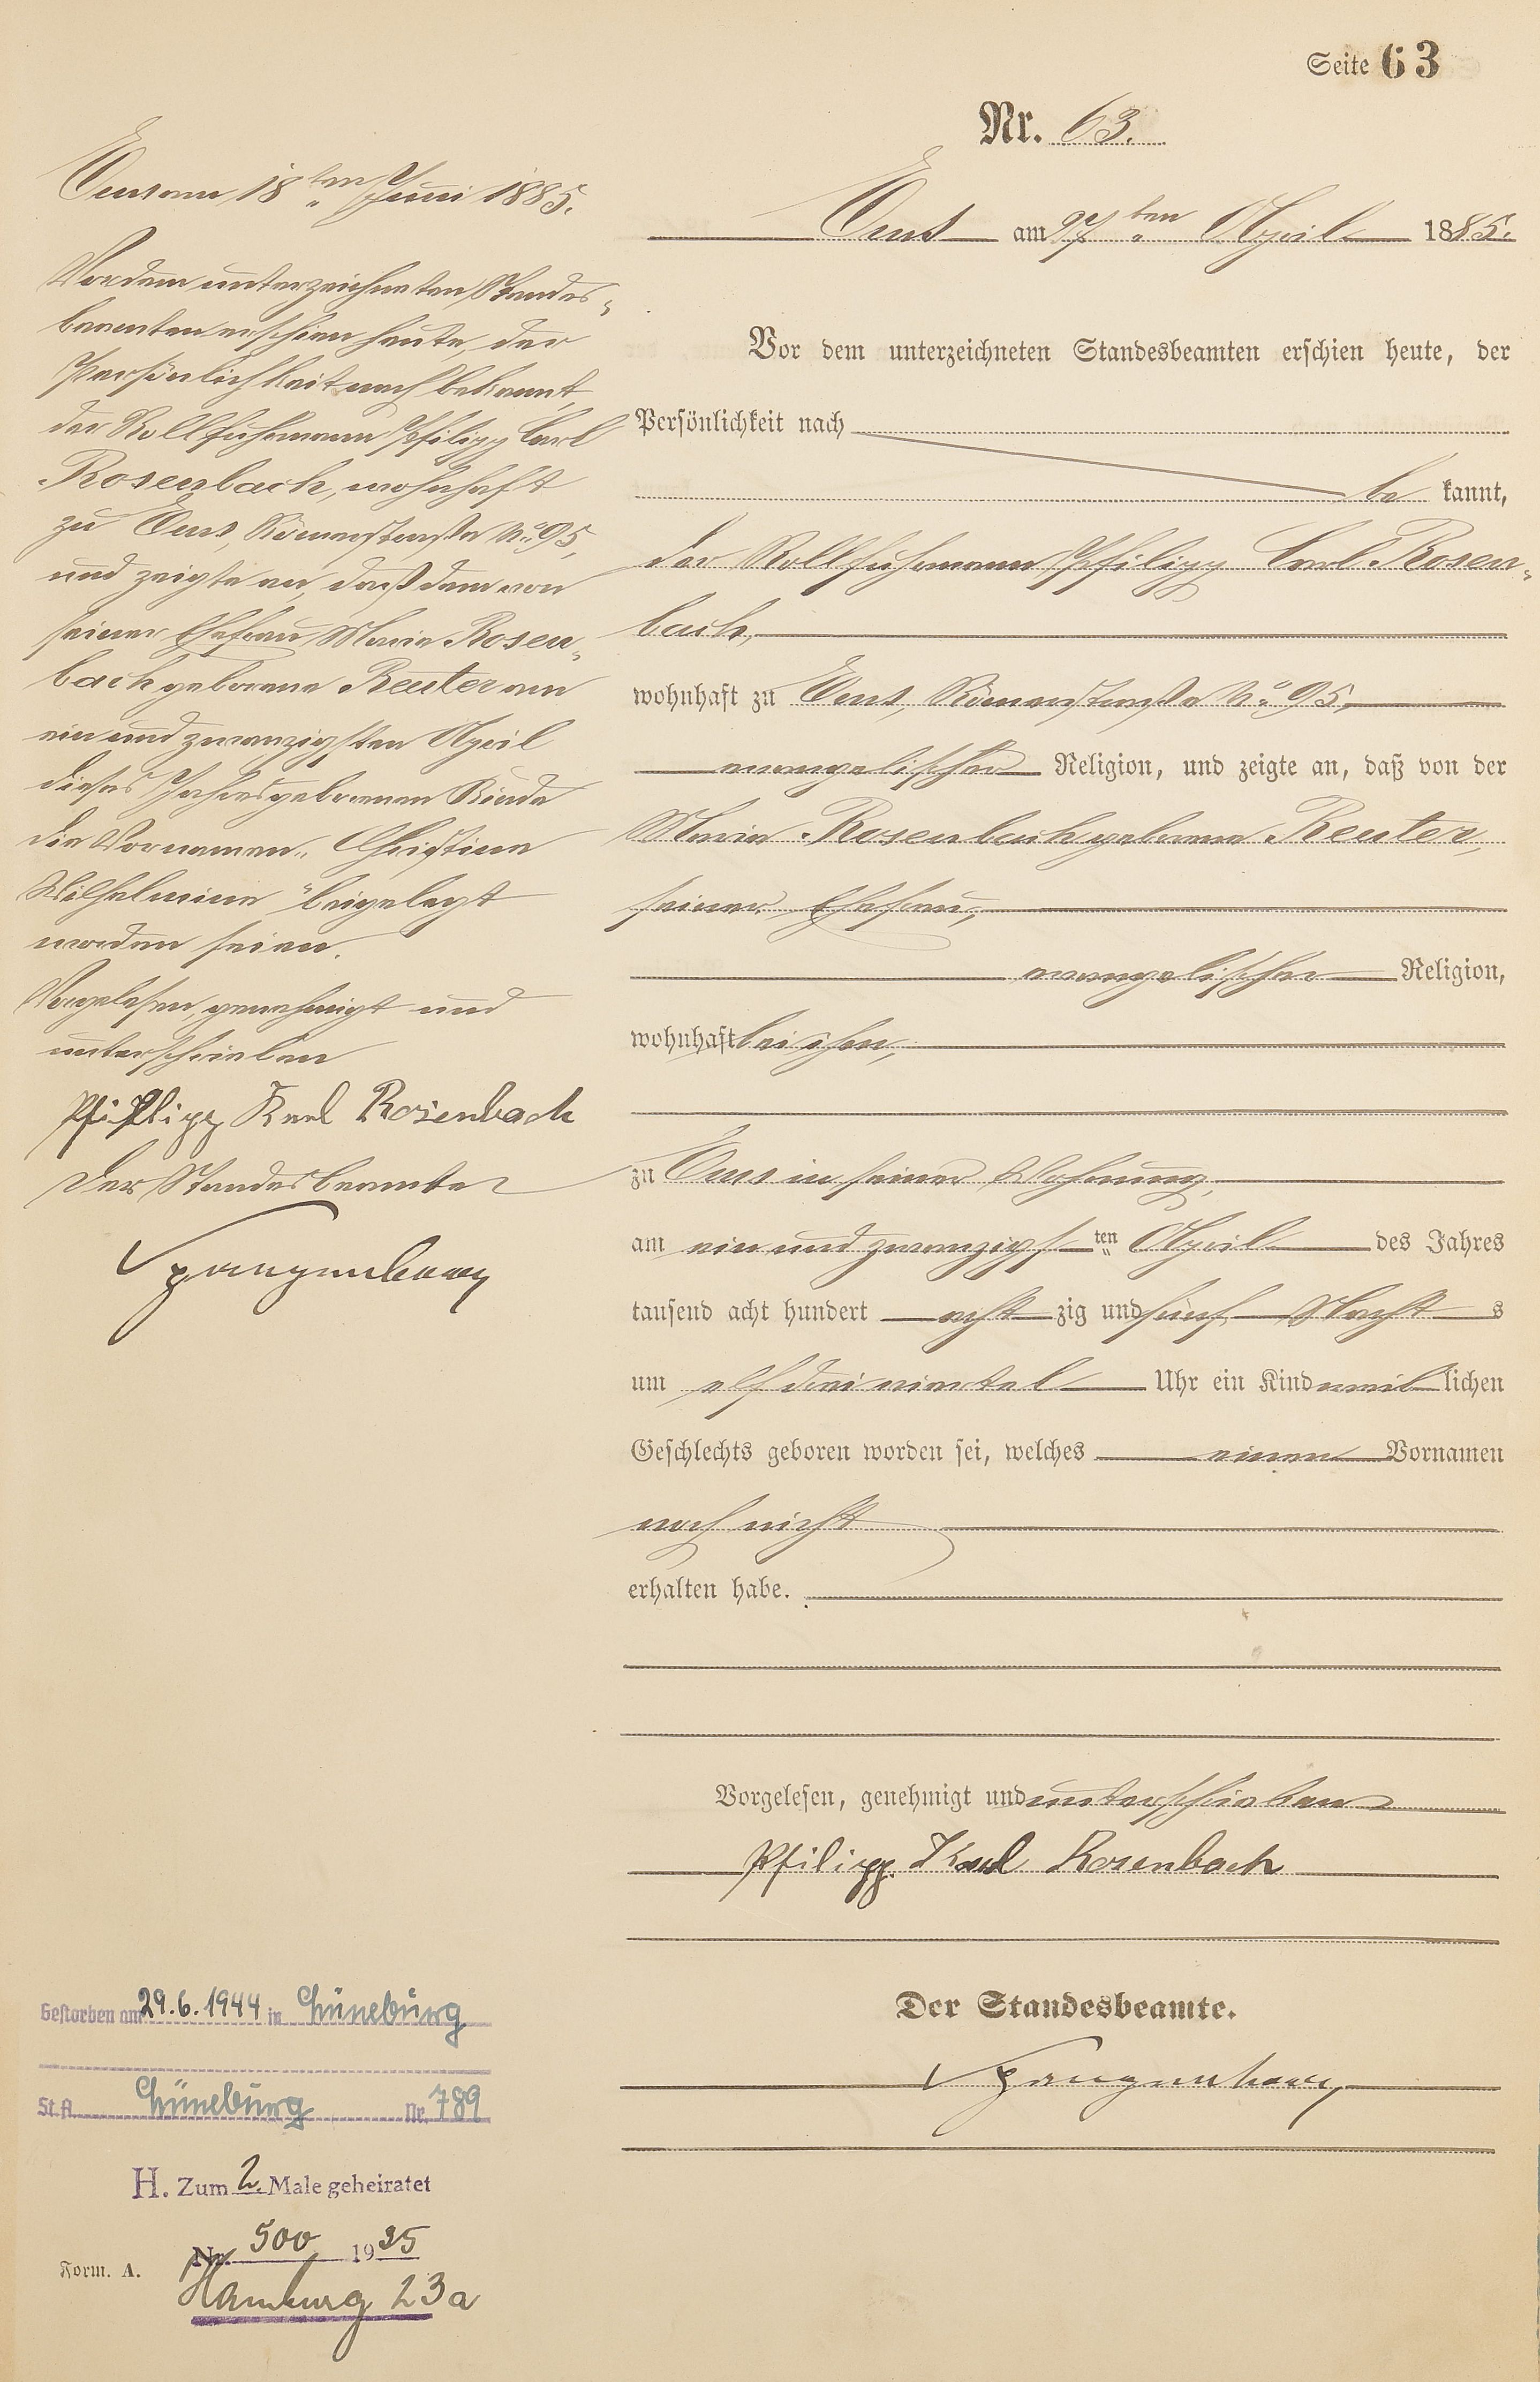 Seite 63
Nr. 63.
Ems am 27ten April 1885.
Vor dem unterzeichneten Standesbeamten erschien heute, der
Persönlichkeit nach
be kannt,
der Rollfuhrmann Philipp Carl Rosen-
bach,
wohnhaft zu Ems, Römerstraße No 95,
evangelischer Religion, und zeigte an, daß von der
Maria Rosenbach geborene Reuter,
seiner Ehefrau,
evangelischer Religion,
wohnhaft bei ihm,
zu Ems in seiner Wohnung,
am ein und zwanzigsten April des Jahres
tausend acht hundert acht zig und fünf Nachts
um elf dreiviertel Uhr ein Kind weiblichen
Geschlechts geboren worden sei, welches einen Vornamen
noch nicht
erhalten habe.
Vorgelesen, genehmigt und unterschrieben
Philipp Karl Rosenbach
Der Standesbeamte.
Spangenberg
Ems am 18ten Juni 1885.
Vor dem unterzeichneten Standes-
beamten erschien heute, der
Persönlichkeit nach bekannt,
der Rollfuhrmann Philipp Carl
Rosenbach, wohnhaft
zu Ems, Römerstraße No 95,
und zeigte an, daß dem von
seiner Ehefrau Maria Rosen-
bach geborene Reuter am
ein und zwanzigsten April
dieses Jahres geborenen Kinde
die Vornamen „Christine
Wilhelmine" beigelegt
worden seien.
Vorgelesen, genehmigt und
unterschrieben
Philipp Karl Rosenbach
Der Standesbeamte
Spangenberg
Gestorben am 29.6.1944 in Lüneburg
St.A. Lüneburg Nr. 789
H. Zum 2. Male geheiratet
Nr. 500 1935
Hamburg 23a
Form. A.